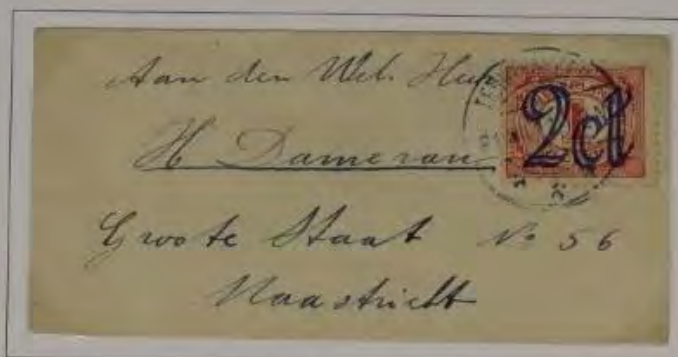 Aan den Wel. Heer
H Dameran
Groote Staat No 56
Maastricht
2ct